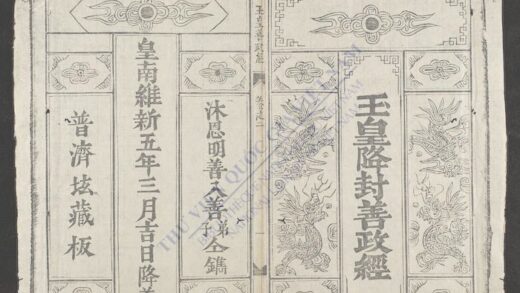 玉皇降封善政經
玉皇善政經
沐恩明善善弟子仝鐫
皇南維新五年三月吉日降
普濟坛藏板
THƯ VIỆN QUỐC GIA VIỆT NAM